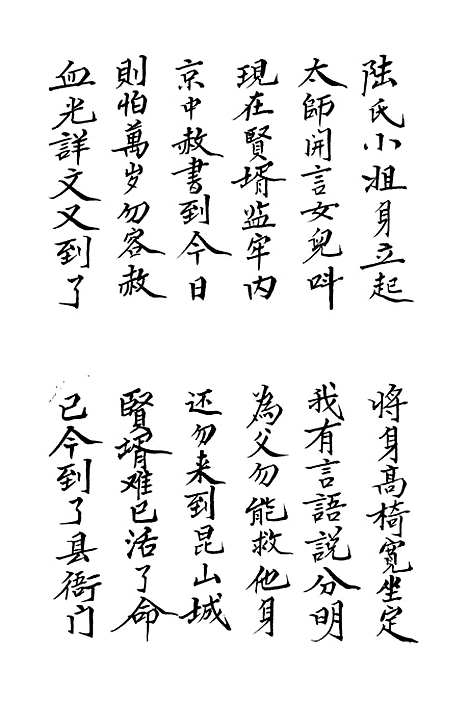 陆氏小姐身立起
将身高椅宽坐定
太師開言女兒呌
我有言語説分明
現在賢壻监牢内
為父勿能救他身
京中赦書到今日
还勿来到昆山城
則怕萬岁勿容赦
賢壻难已活了命
血光詳文又到了
已今到了县衙门